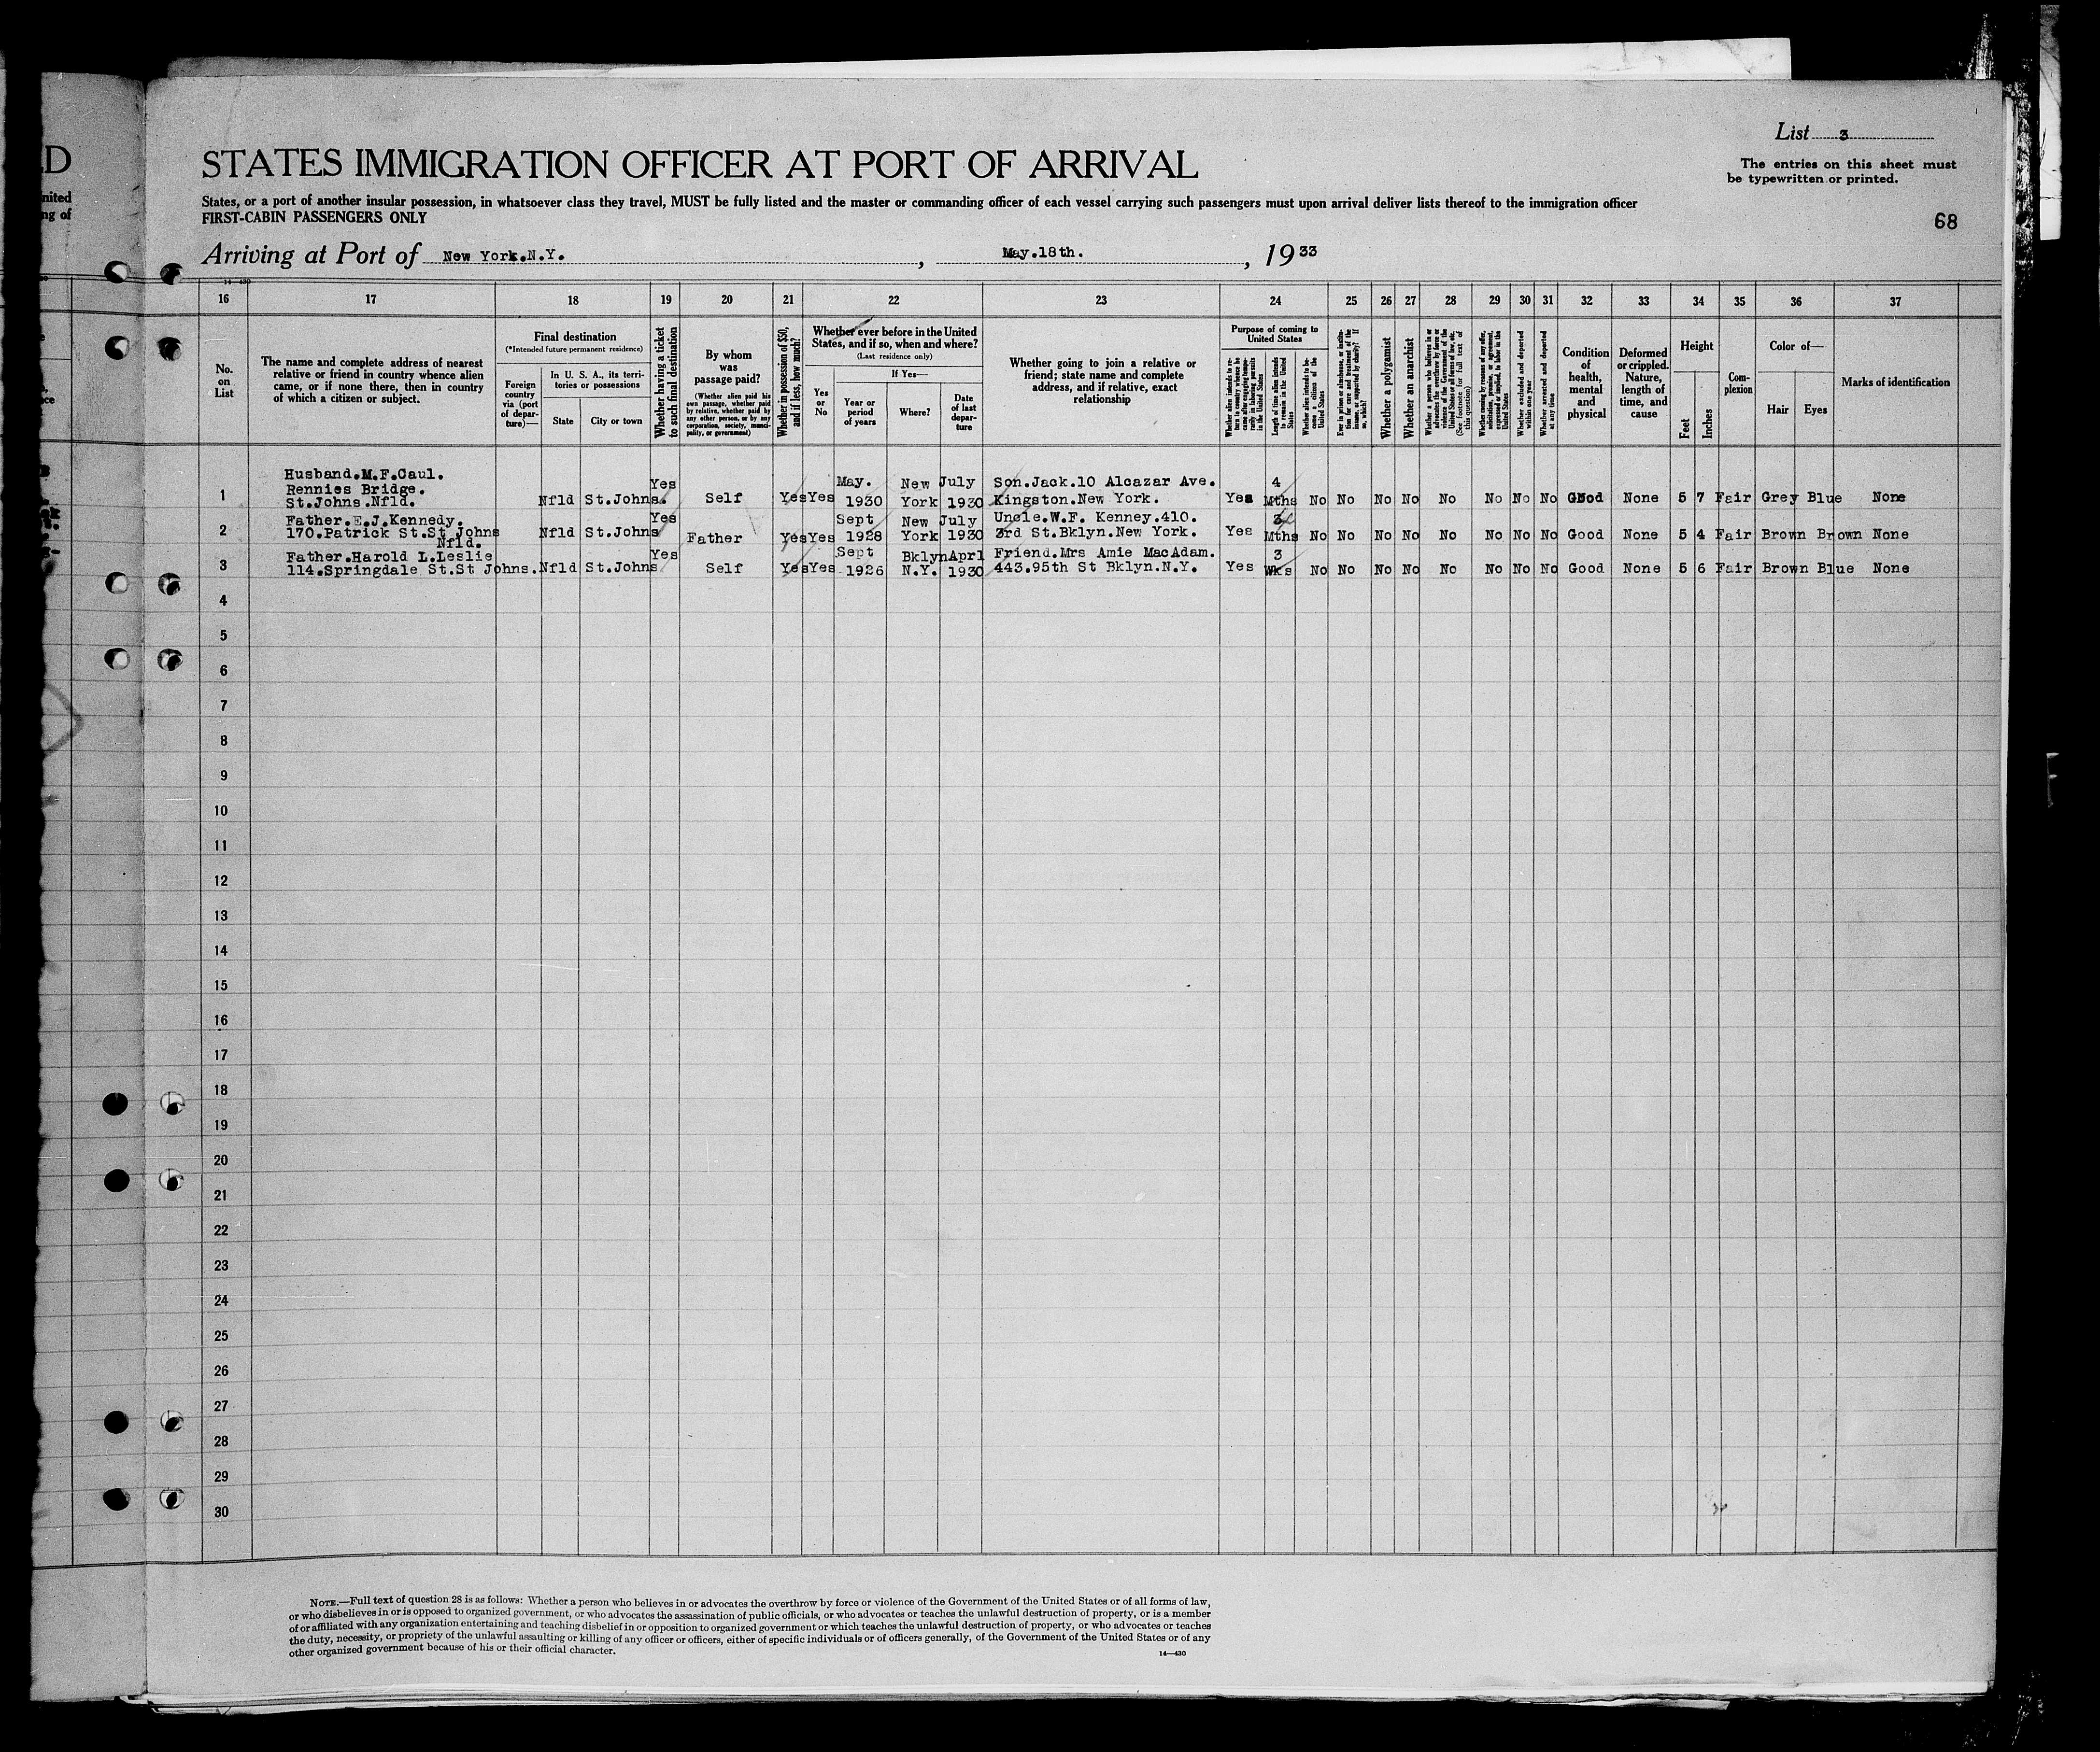 D
nited
ng of
List 3
STATES IMMIGRATION OFFICER AT PORT OF ARRIVAL
The entries on this sheet must
be typewritten or printed.
States, or a port of another insular possession, in whatsoever class they travel, MUST be fully listed and the master or commanding officer of each vessel carrying such passengers must upon arrival deliver lists thereof to the immigration officer
FIRST-CABIN PASSENGERS ONLY
68
Arriving at Port of New York.N.Y. , May.18th. , 19 33
14—430
16 17 18 19 20 21 22 23 24 25 26 27 28 29 30 31 32 33 34 35 36 37
No.
on
List
The name and complete address of nearest
relative or friend in country whence alien
came, or if none there, then in country
of which a citizen or subject.
Final destination
(*Intended future permanent residence)
Foreign
country
via (port
of depar-
ture)—
In U. S. A., its terri-
tories or possessions
State City or town
Whether having a ticket
to such final destination
By whom
was
passage paid?
(Whether alien paid his
own passage, whether paid
by relative, whether paid by
any other person, or by any
corporation, society, munici-
pality, or government)
Whether in possession of $50,
and if less, how much?
Whether ever before in the United
States, and if so, when and where?
(Last residence only)
Yes
or
No
If Yes—
Year or
period
of years
Where?
Date
of last
depar-
ture
Whether going to join a relative or
friend; state name and complete
address, and if relative, exact
relationship
Purpose of coming to
United States
Whether alien intends to re-
turn to country whence he
came after engaging tempo-
rarily in laboring pursuits
in the United States
Length of time alien intends
to remain in the United
States
Whether alien intends to be-
come a citizen of the
United States
Ever in prison or almshouse, or institu-
tion for care and treatment of the
insane, or supported by charity? If
so, which?
Whether a polygamist
Whether an anarchist
Whether a person who believes in or
advocates the overthrow by force or
violence of the Government of the
United States or all forms of law, etc.
(See footnote for full text of
this question)
Whether coming by reason of any offer,
solicitation, promise, or agreement,
expressed or implied, to labor in the
United States
Whether excluded and deported
within one year
Whether arrested and deported
at any time
Condition
of
health,
mental
and
physical
Deformed
or crippled.
Nature,
length of
time, and
cause
Height
Feet Inches
Com-
plexion
Color of—
Hair Eyes
Marks of identification
Husband.M.F.Caul.
Rennies Bridge.
1 St.Johns.Nfld. Nfld St.Johns. Yes Self Yes Yes May. 1930 New York July 1930 Son.Jack.10 Alcazar Ave. Kingston.New York. Yes 4 Mths No No No No No No No No Good None 5 7 Fair Grey Blue None
Father.E.J.Kennedy.
2 170.Patrick St.St Johns Nfld. Nfld St.Johns Yes Father Yes Yes Sept 1928 New York July 1930 Uncle.W.F. Kenney.410. 3rd St.Bklyn.New York. Yes Mths No No No No No No No No Good None 5 4 Fair Brown Brown None
Father.Harold L.Leslie
3 114.Springdale St.St Johns. Nfld St.Johns Yes Self Yes Yes Sept 1926 Bklyn N.Y. Aprl 1930 Friend.Mrs Amie MacAdam. 443.95th St Bklyn.N.Y. Yes 3 Wks No No No No No No No No Good None 5 6 Fair Brown Blue None
4
5
6
7
8
9
10
11
12
13
14
15
16
17
18
19
20
21
22
23
24
25
26
27
28
29
30
NOTE.—Full text of question 28 is as follows: Whether a person who believes in or advocates the overthrow by force or violence of the Government of the United States or of all forms of law,
or who disbelieves in or is opposed to organized government, or who advocates the assassination of public officials, or who advocates or teaches the unlawful destruction of property, or is a member
of or affiliated with any organization entertaining and teaching disbelief in or opposition to organized government or which teaches the unlawful destruction of property, or who advocates or teaches
the duty, necessity, or propriety of the unlawful assaulting or killing of any officer or officers, either of specific individuals or of officers generally, of the Government of the United States or of any
other organized government because of his or their official character.
14—430